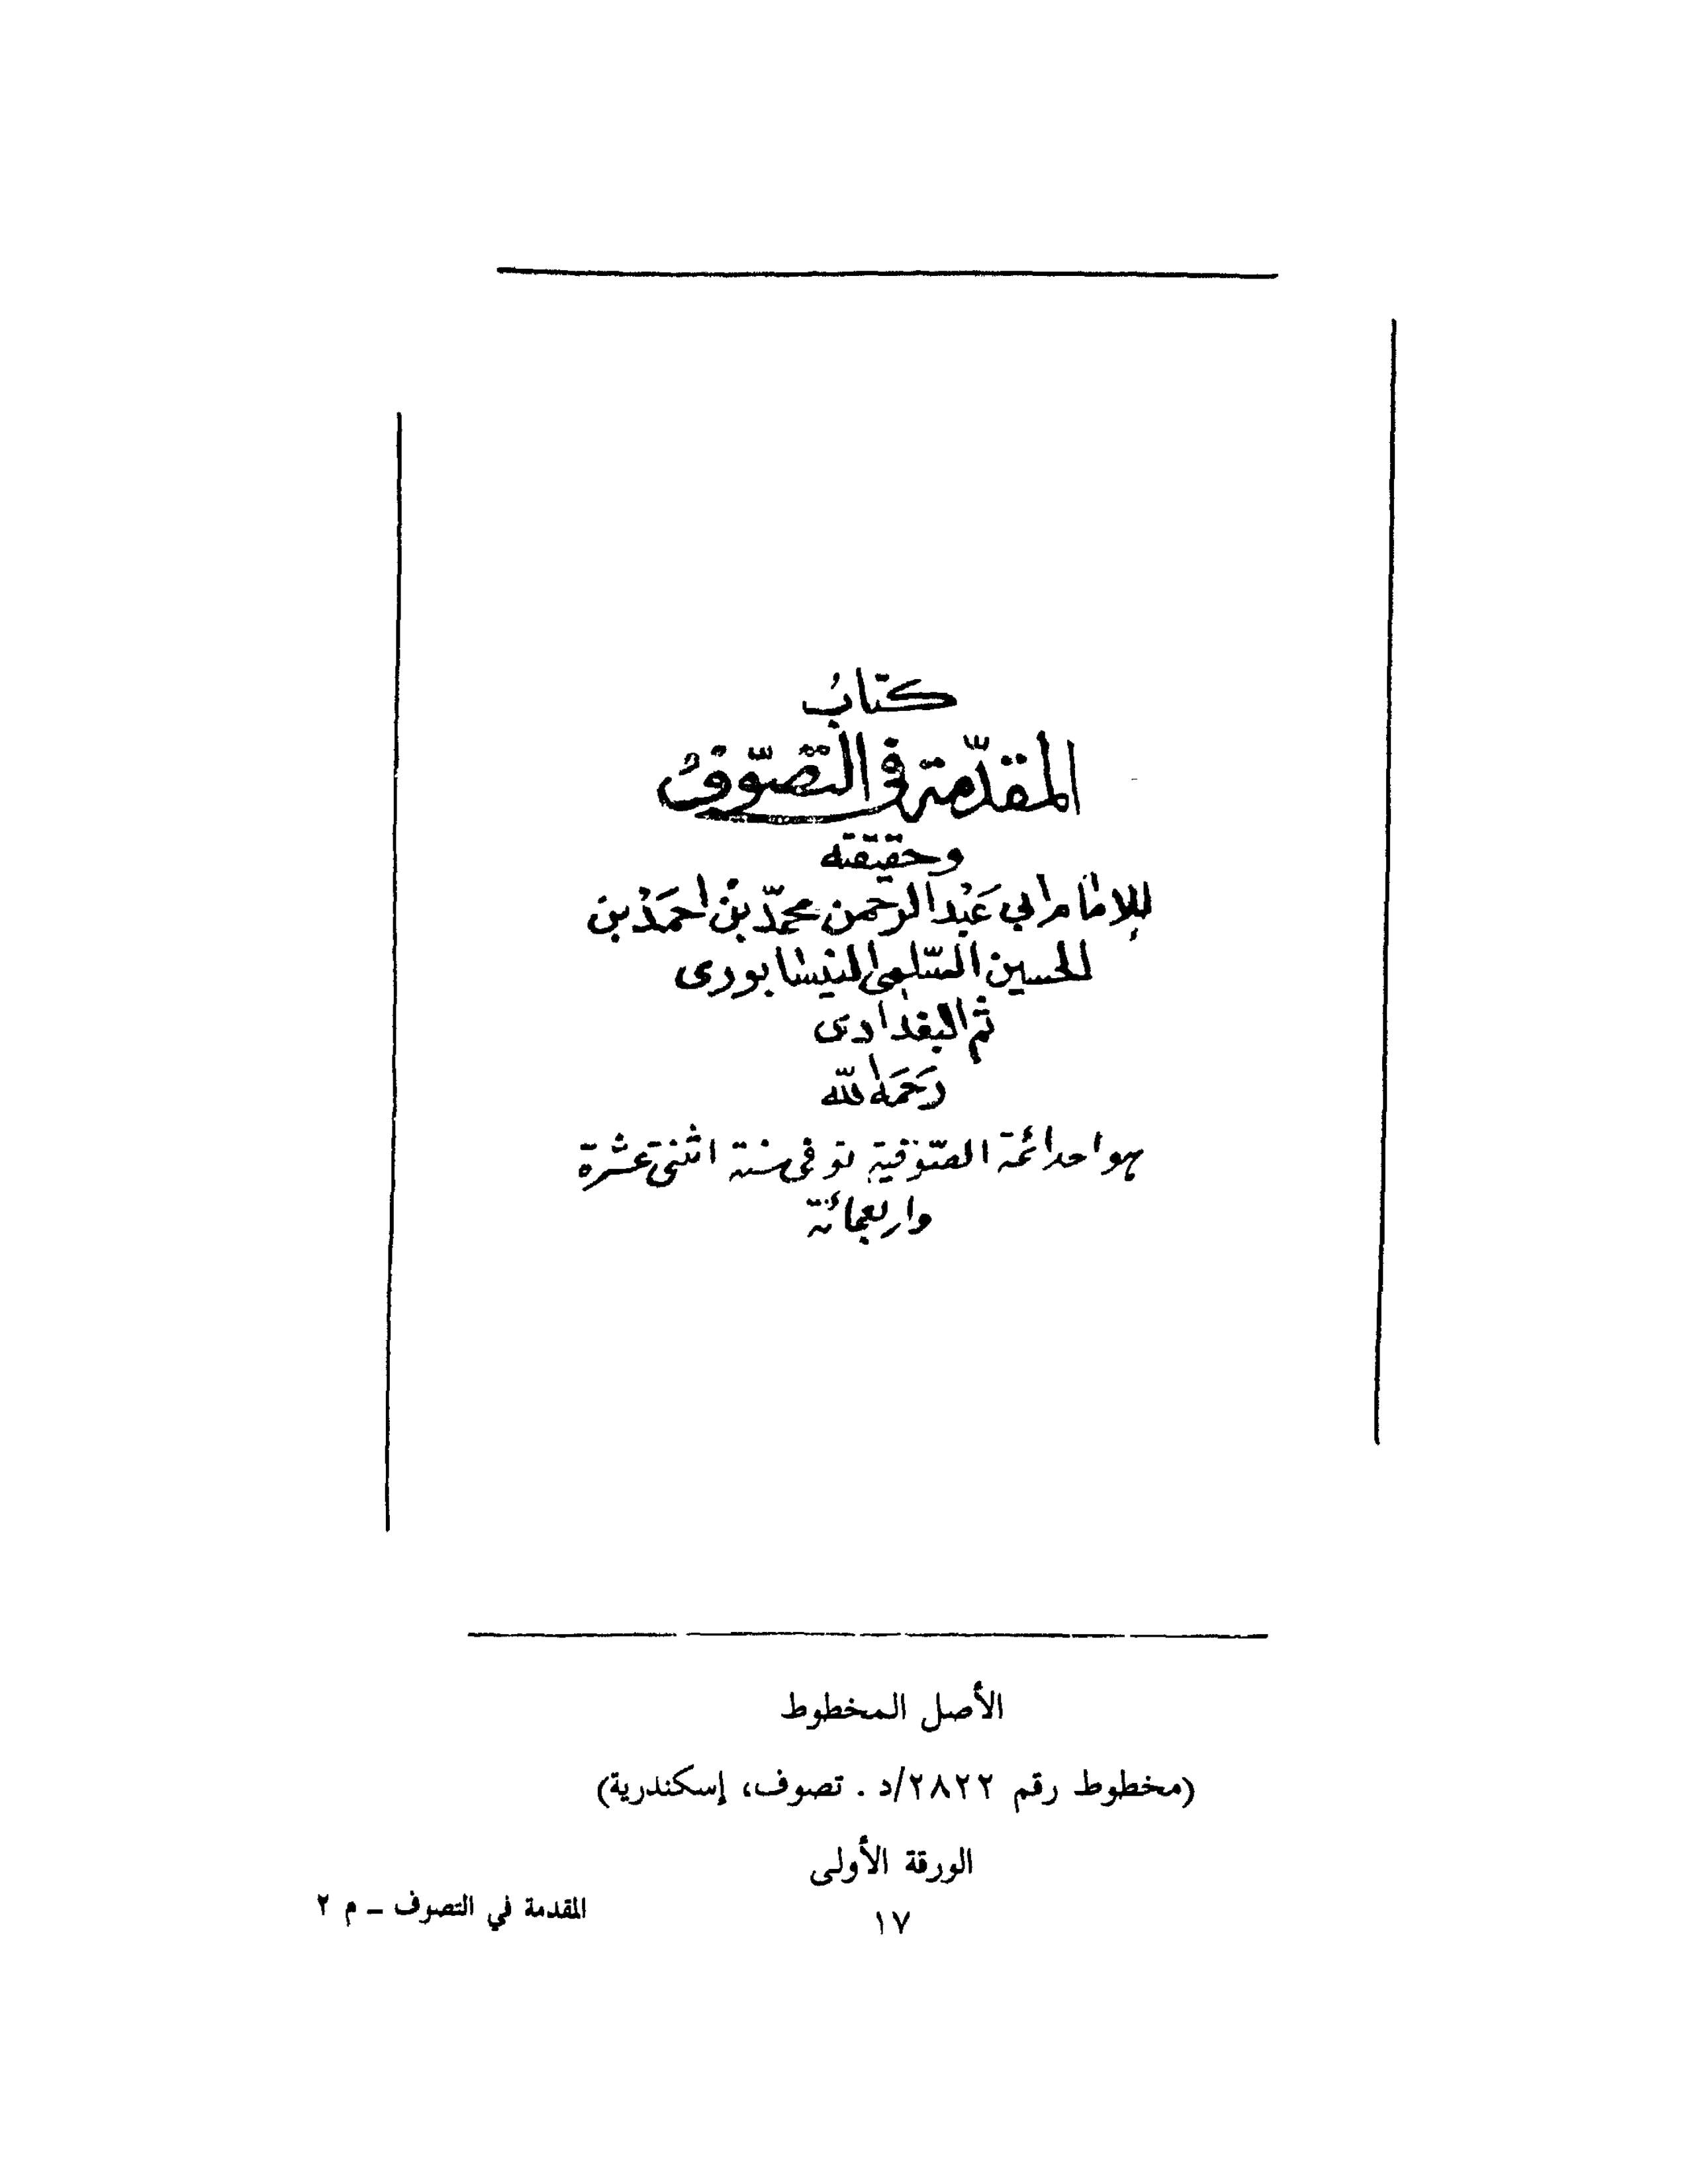 كتاب
المقدّمة في التصوّف
وحقيقته
للإمام ابي عبد الرحمن محمّد بن احمد بن
الحسين السّلمي النيسابورى
ثم البغدادى
رحمه الله
هو احد ائمة الصّوفية توفى سنة اثنتى عشرة
واربعمائة
الأصل المخطوط
(مخطوط رقم ٢٨٢٢/د . تصوف، إسكندرية)
الورقة الأولى
المقدمة في التصوف – م ٢
١٧